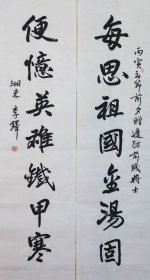 丙寅春節前夕贈邊防前线將士
每思祖國金湯固
便憶英雄鐵甲寒
湘東李鐸